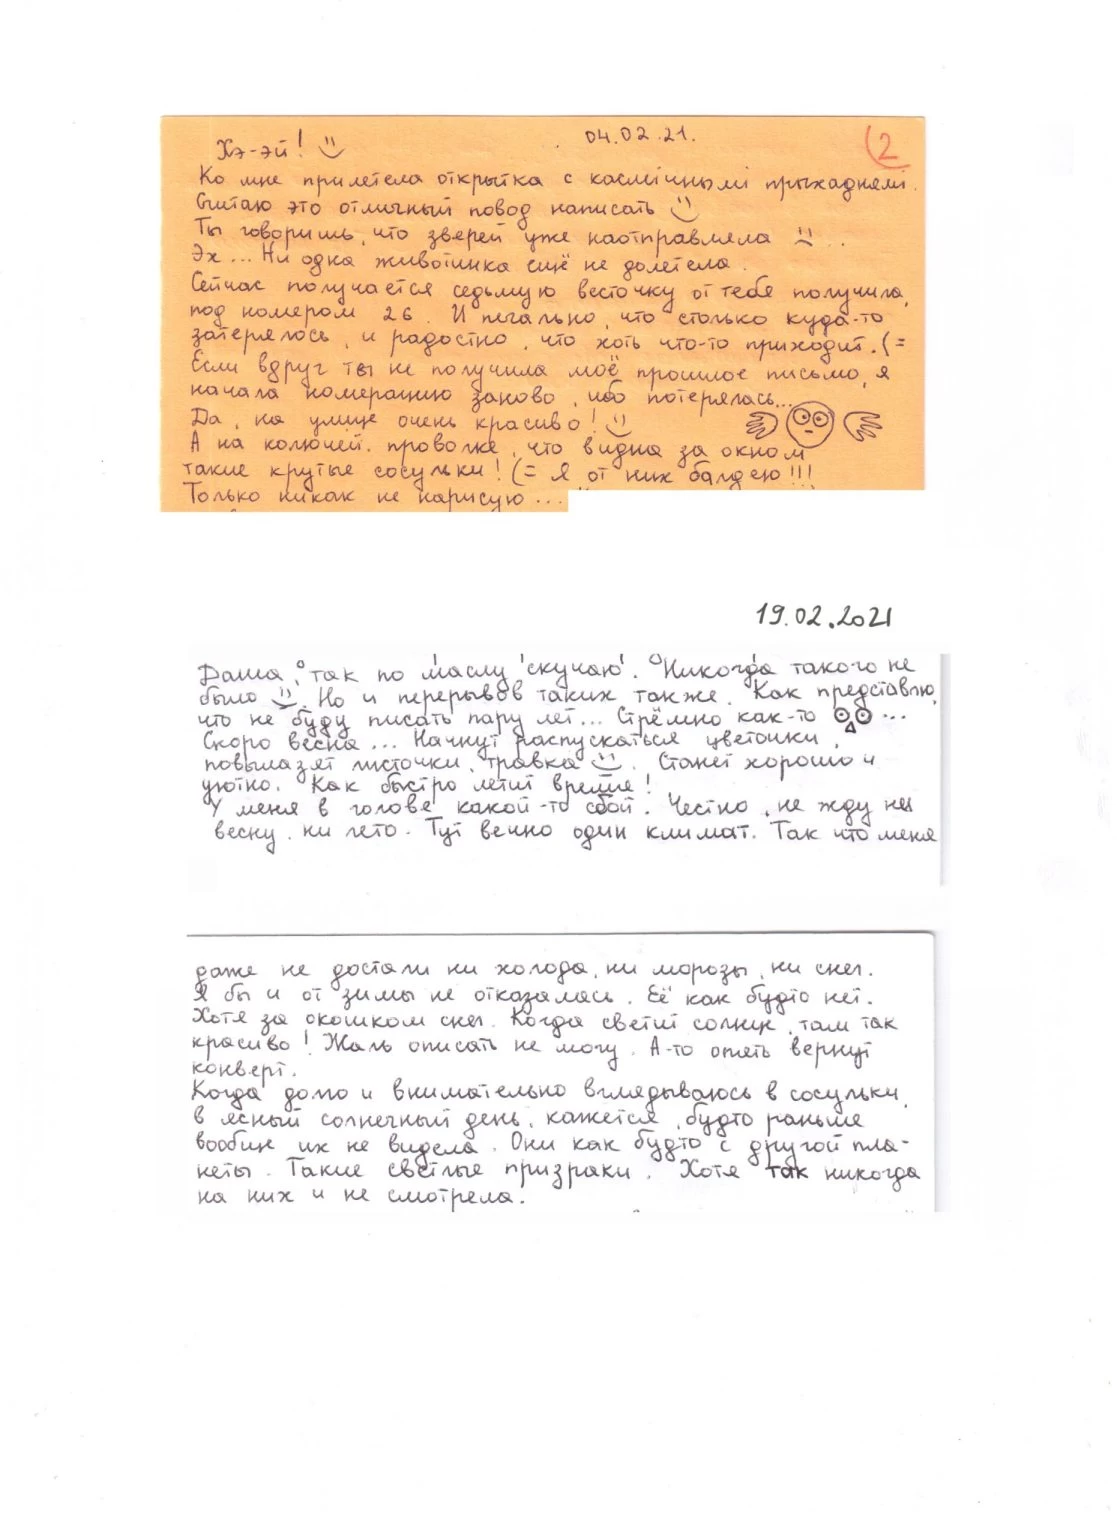 Хэ-эй!
04.02.21.
2
Ко мне прилетела открытка с касмічнымі прыхаднямі.
Считаю это отличный повод написать
Ты говоришь, что зверей уже наотправляла ...
Эх... Ни одна животинка ещё не долетела.
Сейчас получается седьмую весточку от тебя получила,
под номером 26. И печально, что столько куда-то
затерялось, и радостно, что хоть что-то приходит. (=
Если вдруг ты не получила моё прошлое письмо, я
начала номерацию заново, ибо потерялась...
Да, на улице очень красиво!
А на колючей проволке, что видна за окном
такие крутые сосульки! (= Я от них балдею!!!
Только никак не нарисую...
19.02.2021
Даша, так по маслу скучаю. Никогда такого не
было. Но и перерывов таких также. Как представлю,
что не буду писать пару лет... Стрёмно как-то ...
Скоро весна... Начнут распускаться цветочки,
повылазят листочки, травка. Станет хорошо и
уютно. Как быстро летит время!
У меня в голове какой-то сбой. Честно, не жду ни
весну, ни лето. Тут вечно один климат. Так что меня
даже не достали ни холода, ни морозы, ни снег.
Я бы и от зимы не отказалась. Её как будто нет.
Хотя за окошком снег. Когда светит солнце, там так
красиво! Жаль описать не могу. А-то опять вернут
конверт.
Когда долго и внимательно вглядываюсь в сосульки,
в ясный солнечный день, кажется, будто раньше
вообще их не видела. Они как будто с другой пла-
неты. Такие светлые призраки. Хотя так никогда
на них и не смотрела.